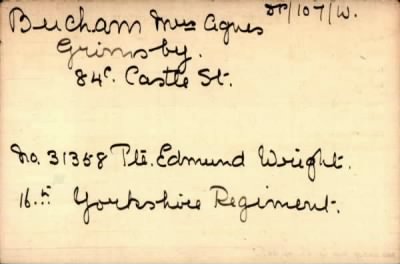 Beecham Mrs Agnes SP/107/W.
Grimsby.
84c. Castle St.
No. 31358 Pte. Edmund Wright.
16.th Yorkshire Regiment.